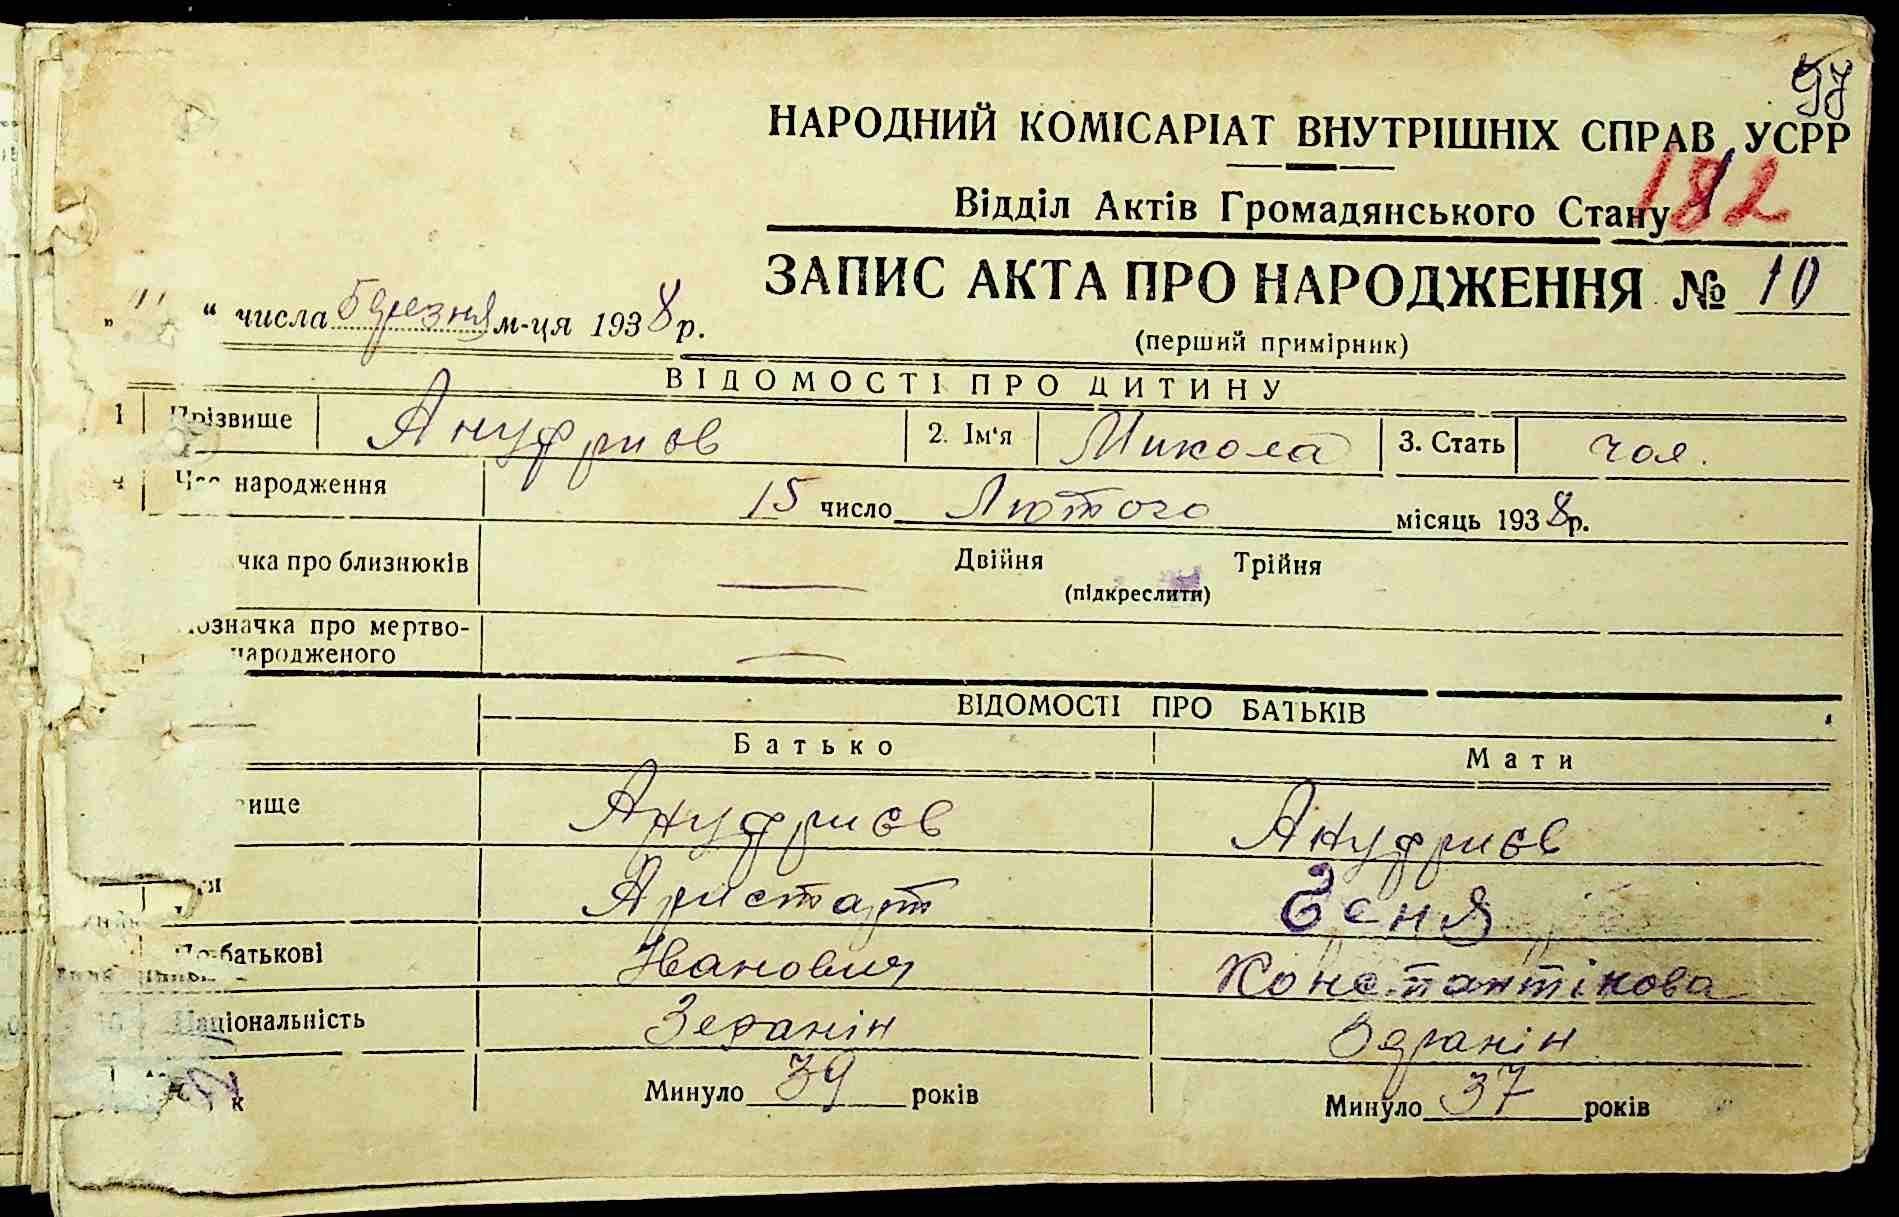 97
НАРОДНИЙ КОМІСАРІАТ ВНУТРІШНІХ СПРАВ УСРР
182
Відділ Актів Громадянського Стану
ЗАПИС АКТА ПРО НАРОДЖЕННЯ № 10
„ “ числа Березня м-ця 1938 р.
(перший примірник)
ВІДОМОСТІ ПРО ДИТИНУ
1 Прізвище Ануфриєв 2. Ім'я Микола 3. Стать чол.
4 Час народження 15 число Лютого місяць 1938р.
чка про близнюків — Двійня Трійня
(підкреслити)
означка про мертво-
народженого —
ВІДОМОСТІ ПРО БАТЬКІВ
Батько Мати
вище Ануфриєв Ануфриєв
Аристарт Зєня
По-батькові Іванович Константінова
Національність
Минуло 39 років Минуло 37 років